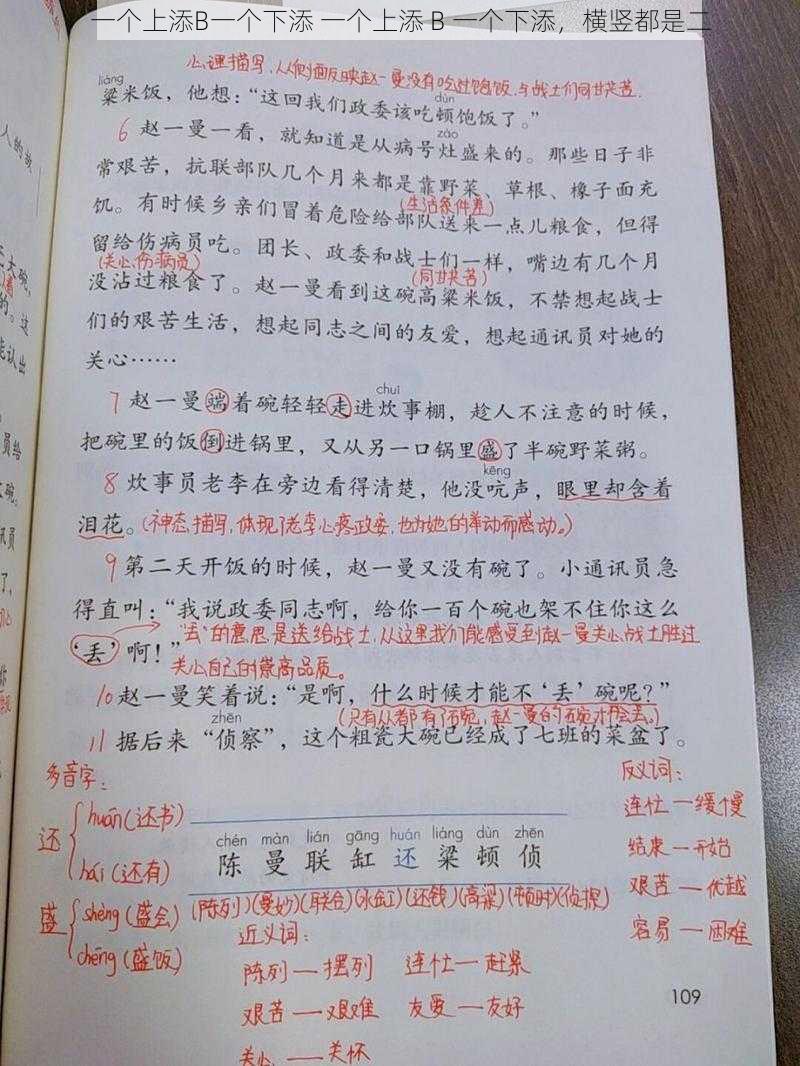 一个上添B一个下添 一个上添 B 一个下添，横竖都是二
心理描写,从侧面反映赵一曼没有吃过饱饭,与战士们同甘共苦.
liáng
粱米饭，他想：“这回我们政委该吃顿饱饭了。”
dùn
6 赵一曼一看，就知道是从病号灶盛来的。那些日子非
zào
常艰苦，抗联部队几个月来都是靠野菜、草根、橡子面充
(生活条件差)
饥。有时候乡亲们冒着危险给部队送来一点儿粮食，但得
留给伤病员吃。团长、政委和战士们一样，嘴边有几个月
(关心伤病员)
(同甘共苦)
没沾过粮食了。赵一曼看到这碗高粱米饭，不禁想起战士
们的艰苦生活，想起同志之间的友爱，想起通讯员对她的
关心……
chuī
7 赵一曼端着碗轻轻走进炊事棚，趁人不注意的时候，
把碗里的饭倒进锅里，又从另一口锅里盛了半碗野菜粥。
kēng
8 炊事员老李在旁边看得清楚，他没吭声，眼里却含着
泪花。(神态描写,体现了老李心疼政委,也为她的举动而感动。)
9 第二天开饭的时候，赵一曼又没有碗了。小通讯员急
得直叫：“我说政委同志啊，给你一百个碗也架不住你这么
‘丢’啊！”
“丢”的意思是送给战士,从这里我们能感受到赵一曼关心战士胜过
关心自己的崇高品质。
10 赵一曼笑着说：“是啊，什么时候才能不‘丢’碗呢？”
zhēn
11 据后来“侦察”，这个粗瓷大碗已经成了七班的菜盆了。
多音字：
还 huán(还书)
hái(还有)
盛 shèng(盛会)
chéng(盛饭)
chén màn lián gāng huán liáng dùn zhēn
陈 曼 联 缸 还 粱 顿 侦
(陈列)(曼妙)(联合)(水缸)(还钱)(高粱)(顿时)(侦探)
近义词：
陈列—摆列 连忙—赶紧
艰苦—艰难 友爱—友好
关心—关怀
反义词：
连忙—缓慢
结束—开始
艰苦—优越
容易—困难
109